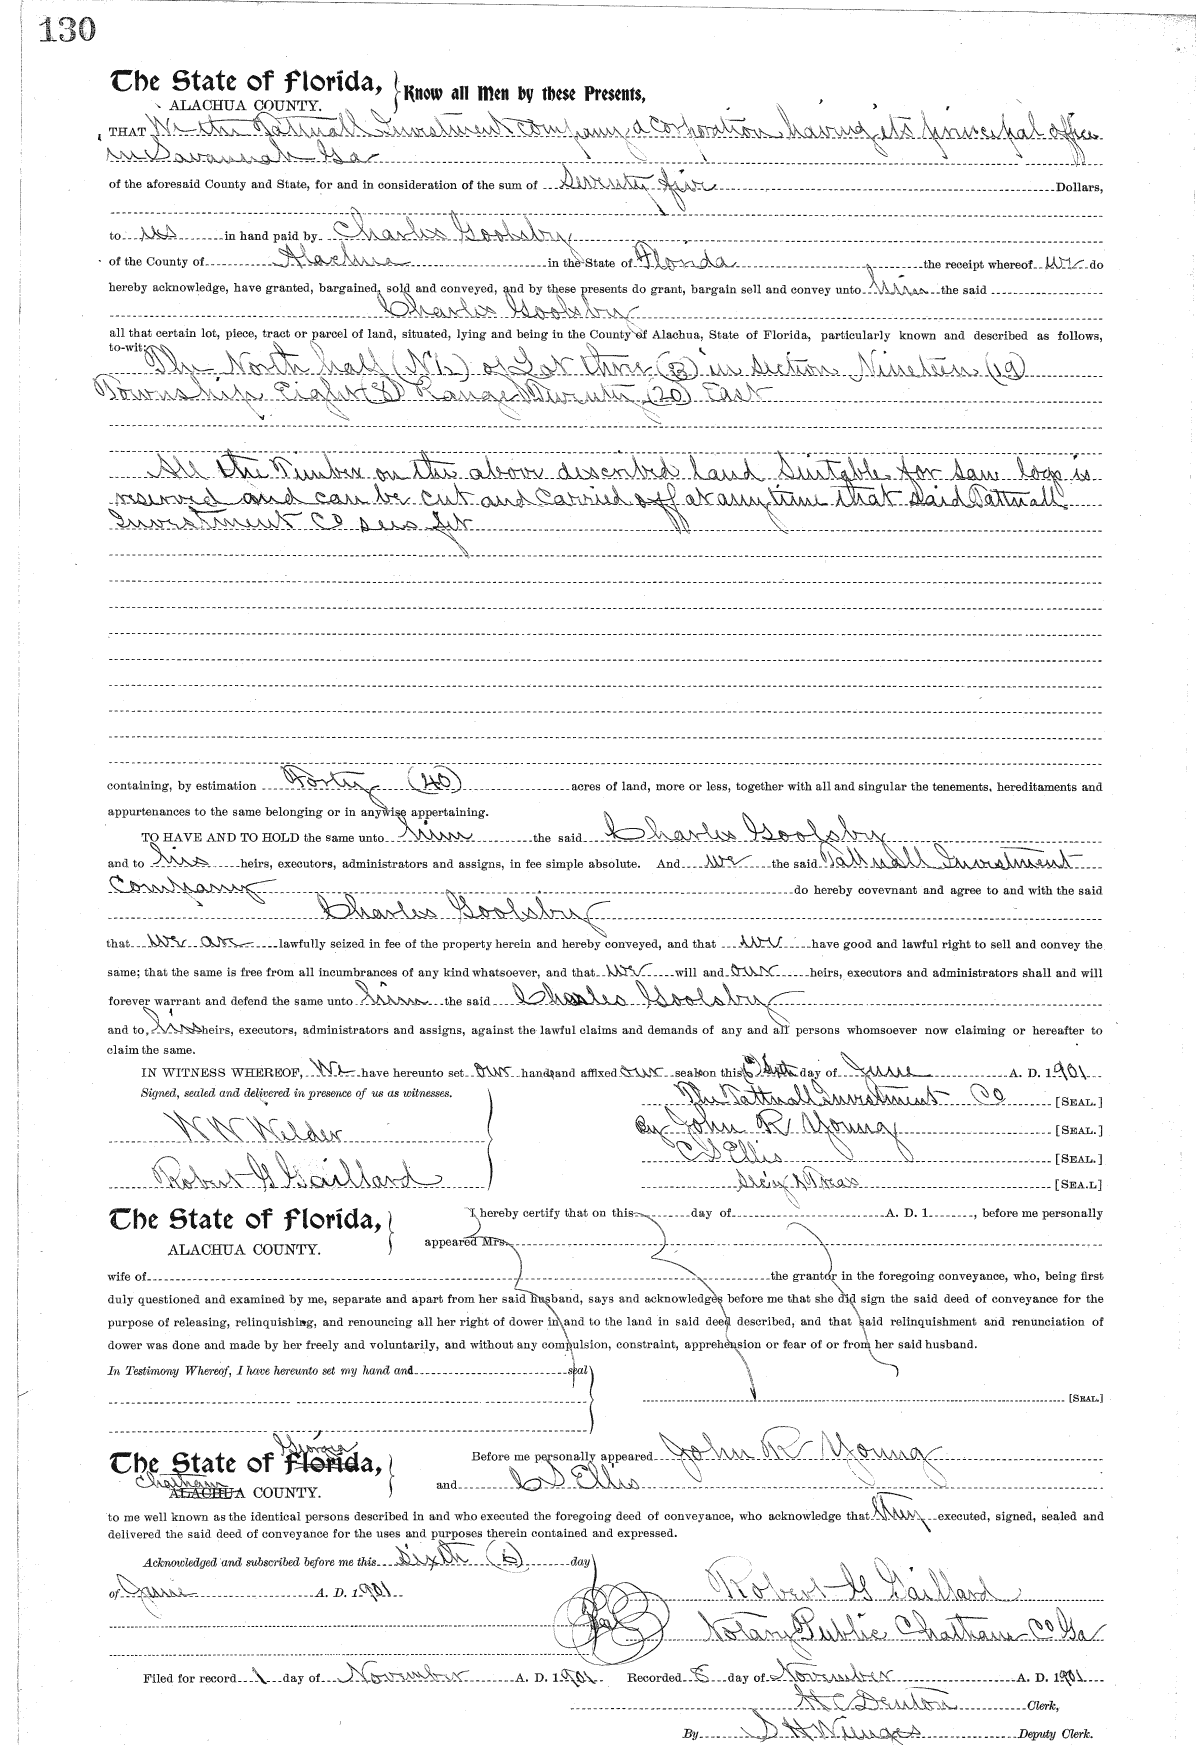 130
The State of Florida,
ALACHUA COUNTY.
Know all Men by these Presents,
THAT We the Tattnall Investment Company, a Corporation having its principal office
in Savannah Ga
of the aforesaid County and State, for and in consideration of the sum of Seventy five Dollars,
to us in hand paid by Charles Goolsby
of the County of Alachua in the State of Florida the receipt whereof we do
hereby acknowledge, have granted, bargained, sold and conveyed, and by these presents do grant, bargain sell and convey unto him the said
Charles Goolsby
all that certain lot, piece, tract or parcel of land, situated, lying and being in the County of Alachua, State of Florida, particularly known and described as follows,
to-wit:
The North half (N½) of Lot three (3) in section Nineteen (19)
Township Eight (8) Range Twenty (20) East
All the Timber on the above described land Suitable for saw logs is
reserved and can be cut and carried off at any time that said Tattnall
Investment Co sees fit
containing, by estimation Forty (40) acres of land, more or less, together with all and singular the tenements, hereditaments and
appurtenances to the same belonging or in anywise appertaining.
TO HAVE AND TO HOLD the same unto him the said Charles Goolsby
and to his heirs, executors, administrators and assigns, in fee simple absolute. And we the said Tattnall Investment
Company do hereby covevnant and agree to and with the said
Charles Goolsby
that we are lawfully seized in fee of the property herein and hereby conveyed, and that we have good and lawful right to sell and convey the
same; that the same is free from all incumbrances of any kind whatsoever, and that we will and our heirs, executors and administrators shall and will
forever warrant and defend the same unto him the said Charles Goolsby
and to his heirs, executors, administrators and assigns, against the lawful claims and demands of any and all persons whomsoever now claiming or hereafter to
claim the same.
IN WITNESS WHEREOF, We have hereunto set our hands and affixed our seals on this 6 Sixth day of June A. D. 1901
Signed, sealed and delivered in presence of us as witnesses.
The Tattnall Investment Co [SEAL.]
W W Wilder
By John R Young [SEAL.]
C S Ellis [SEAL.]
Robert G Gaillard
Secy & Treas [SEA.L]
The State of Florida,
ALACHUA COUNTY.
I hereby certify that on this day of A. D. 1 , before me personally
appeared Mrs.
wife of the grantor in the foregoing conveyance, who, being first
duly questioned and examined by me, separate and apart from her said husband, says and acknowledges before me that she did sign the said deed of conveyance for the
purpose of releasing, relinquishing, and renouncing all her right of dower in and to the land in said deed described, and that said relinquishment and renunciation of
dower was done and made by her freely and voluntarily, and without any compulsion, constraint, apprehension or fear of or from her said husband.
In Testimony Whereof, I have hereunto set my hand and seal
[SEAL.]
Georgia
The State of Florida,
Chatham
ALACHUA COUNTY.
Before me personally appeared John R Young
and C S Ellis
to me well known as the identical persons described in and who executed the foregoing deed of conveyance, who acknowledge that they executed, signed, sealed and
delivered the said deed of conveyance for the uses and purposes therein contained and expressed.
Acknowledged and subscribed before me this sixth (6) day
of June A. D. 1901
Seal
Robert G Gaillard
Notary Public Chatham Co Ga
Filed for record 1 day of November A. D. 1901 Recorded 8 day of November A. D. 1901
H C Denton Clerk,
By S H Wienges Deputy Clerk.